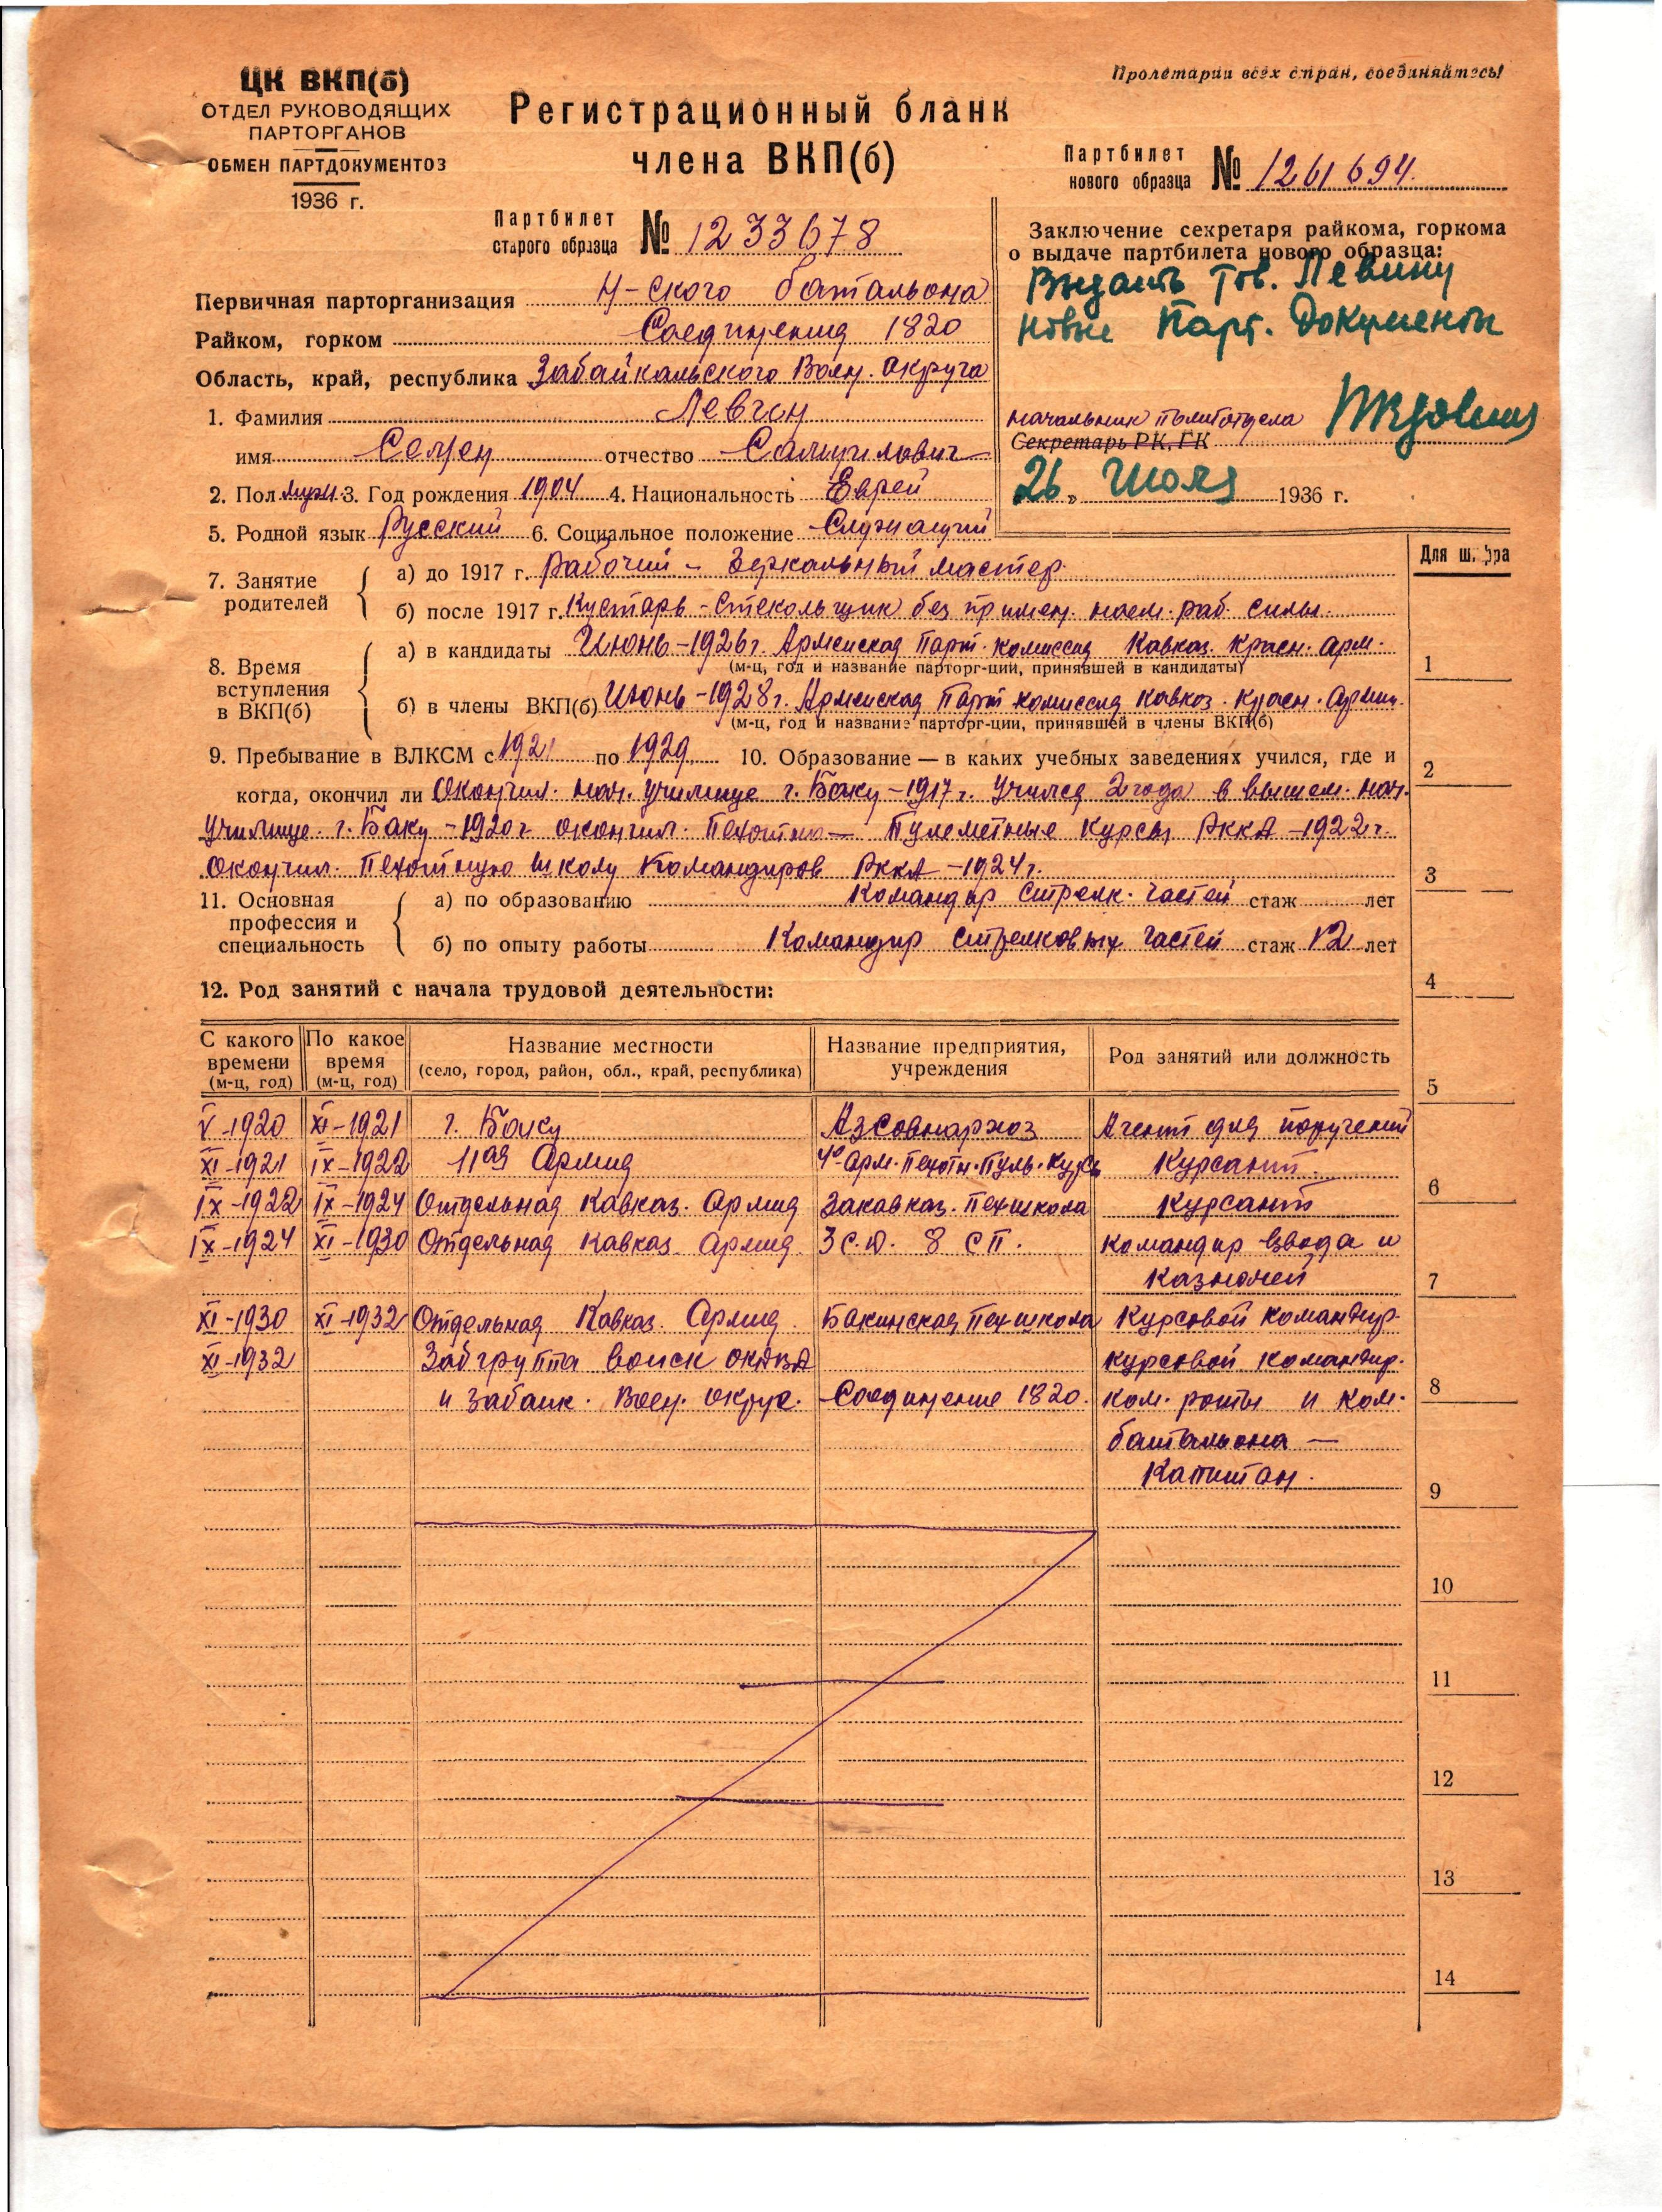 ЦК ВКП(б)
ОТДЕЛ РУКОВОДЯЩИХ
ПАРТОРГАНОВ
ОБМЕН ПАРТДОКУМЕНТОВ
1936 г.
Пролетарии всех стран, соединяйтесь!
Регистрационный бланк
члена ВКП(б)
Партбилет
нового образца № 1261694.
Партбилет
старого образца № 1233678
Заключение секретаря райкома, горкома
о выдаче партбилета нового образца:
Выдать тов. Левину
новые парт. документы
начальник политотдела
Секретарь РК, ГК
"26" Июля 1936 г.
Первичная парторганизация Н-ского батальона
Райком, горком Соединения 1820
Область, край, республика Забайкальского Воен. округа
1. Фамилия Левин
имя Семен отчество Самуилович
2. Пол муж. 3. Год рождения 1904 4. Национальность Еврей
5. Родной язык Русский 6. Социальное положение Служащий
Для шифра
7. Занятие родителей
а) до 1917 г. Рабочий - Зеркальный мастер
б) после 1917 г. Кустарь - стекольщик без примен. наем. раб. силы.
8. Время вступления в ВКП(б)
а) в кандидаты Июнь-1926 г. Армейская Парт. комиссия Кавказ. Красн. арм.
(м-ц, год и название парторг-ции, принявшей в кандидаты)
б) в члены ВКП(б) Июнь-1928 г. Армейская Парт комиссия Кавказ. Красн. Армии.
(м-ц, год и название парторг-ции, принявшей в члены ВКП(б)
9. Пребывание в ВЛКСМ с 1921 по 1929 10. Образование — в каких учебных заведениях учился, где и
когда, окончил ли Окончил. нач. училище г. Баку-1917 г. Учился 2 года в высшем. нач.
училище. г. Баку - 1920 г. окончил. Пехотно— Пулеметные Курсы РККА -1922 г.
окончил. Пехотную Школу Командиров РККА -1924 г.
11. Основная профессия и специальность
а) по образованию Командир стрелк. частей стаж лет
б) по опыту работы Командир стрелковых частей стаж 12 лет
12. Род занятий с начала трудовой деятельности:
С какого времени (м-ц, год) По какое время (м-ц, год) Название местности (село, город, район, обл., край, республика) Название предприятия, учреждения Род занятий или должность
V-1920 XI-1921 г. Баку Азсовнархоз Агент для поручений
XI-1921 IX-1922 11ая Армия Арм. Пехотн. Пуль. Курсы Курсант.
IX-1922 IX-1924 Отдельная Кавказ. Армия Закавказ. Пехшкола Курсант
IX-1924 XI-1930 Отдельная Кавказ. Армия 3 С.Д. 8 СП. командир взвода и
Казначей
XI-1930 XI-1932 Отдельная Кавказ. Армия. Бакинская Пехшкола Курсовой командир.
XI-1932 Забгруппа войск ОКДВА курсовой командир.
и Забайк. Воен. округ. Соединение 1820. ком. роты и ком.
батальона —
Капитан.
1
2
3
4
5
6
7
8
9
10
11
12
13
14